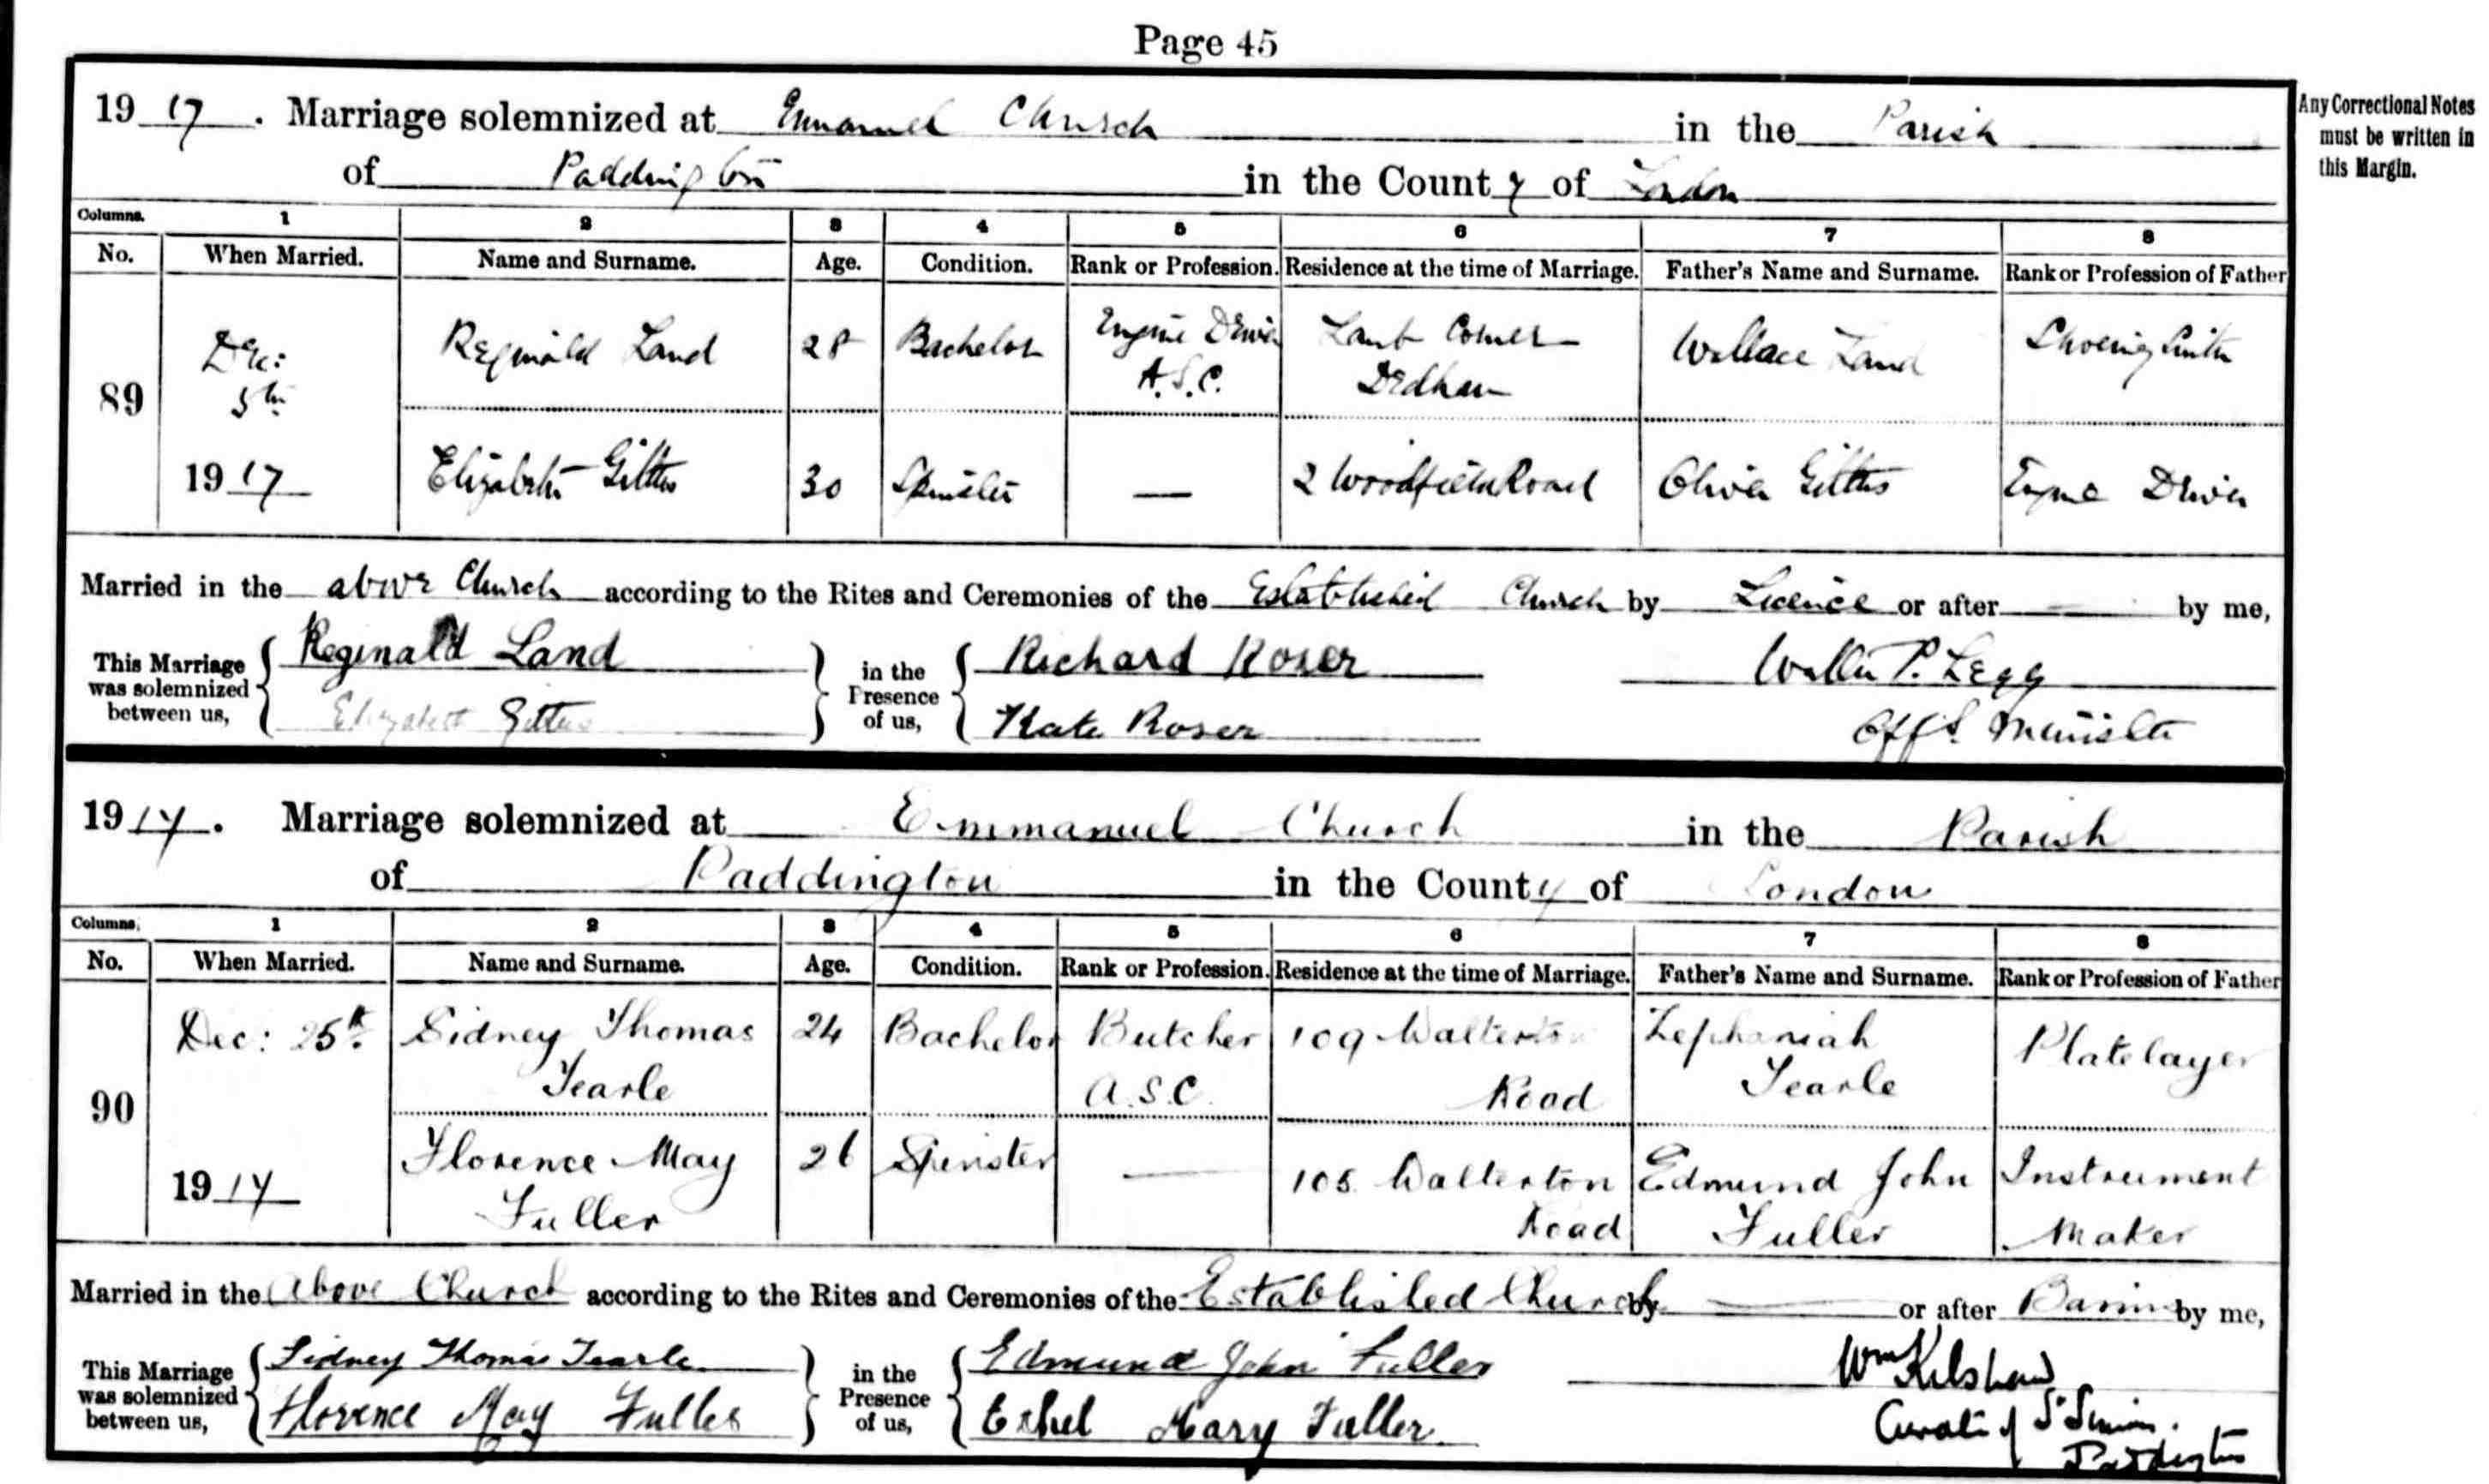 Page 45
1917. Marriage solemnized at Emmanuel Church in the Parish
of Paddington in the County of London
Any Correctional Notes
must be written in
this Margin.
Columns. 1 2 3 4 5 6 7 8
No. When Married. Name and Surname. Age. Condition. Rank or Profession. Residence at the time of Marriage. Father's Name and Surname. Rank or Profession of Father
89 Dec: 5th 1917
Reginald Land 28 Bachelor Engine Driver A.S.C. Lamb Corner Dedham Wallace Land Shoeing Smith
Elizabeth Gittus 30 Spinster — 2 Woodfield Road Oliver Gittus Engine Driver
Married in the above Church according to the Rites and Ceremonies of the Established Church by Licence or after — by me,
This Marriage was solemnized between us, Reginald Land Elizabeth Gittus in the Presence of us, Richard Roser Kate Roser Walter P. Legg
Offg. Minister
1917. Marriage solemnized at Emmanuel Church in the Parish
of Paddington in the County of London
Columns. 1 2 3 4 5 6 7 8
No. When Married. Name and Surname. Age. Condition. Rank or Profession. Residence at the time of Marriage. Father's Name and Surname. Rank or Profession of Father
90 Dec: 25th 1917
Sidney Thomas Tearle 24 Bachelor Butcher A.S.C. 109 Walterton Road Zephaniah Tearle Platelayer
Florence May Fuller 26 Spinster — Walterton Road Edmund John Fuller Instrument Maker
Married in the Above Church according to the Rites and Ceremonies of the Established Church by — or after Banns by me,
This Marriage was solemnized between us, Sidney Thomas Tearle Florence May Fuller in the Presence of us, Edmund John Fuller Ethel Mary Fuller Wm Kilshaw
Curate of St Simon.
Paddington